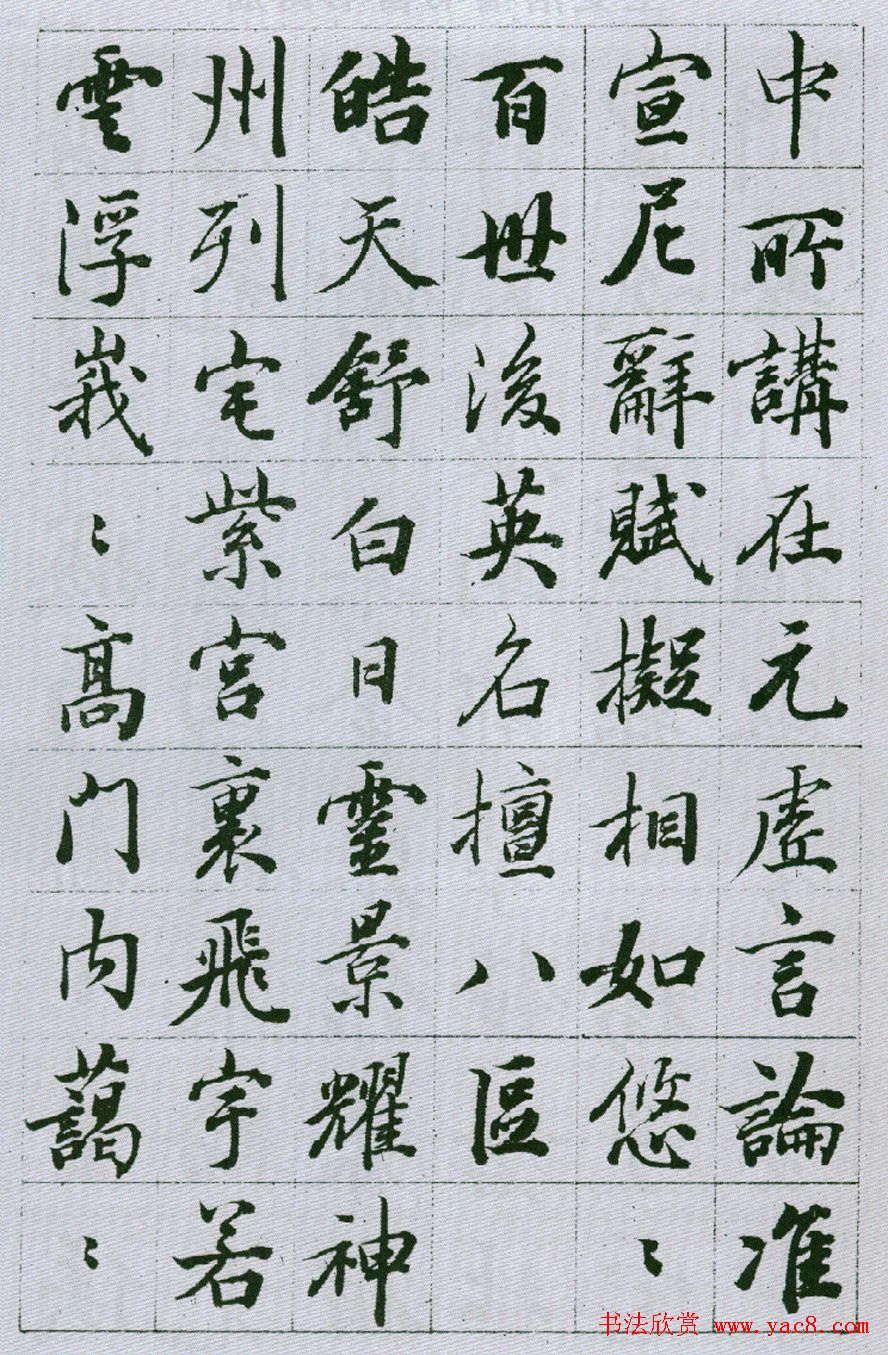 中所講在元虛言論准
宣尼辭賦擬相如悠〻
百世後英名擅八區
皓天舒白日靈景耀神
州列宅紫宮裏飛宇若
雲浮峩〻高門內藹〻
书法欣赏 www.yac8.com